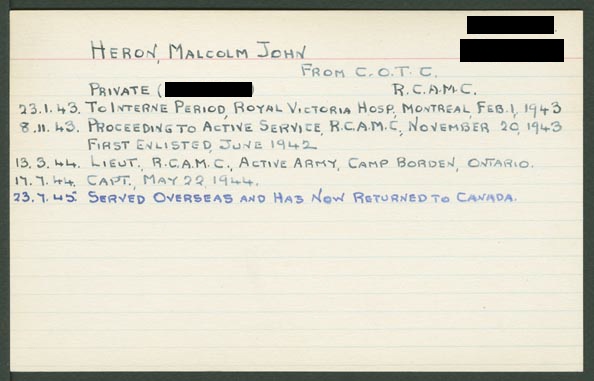 HERON, MALCOLM JOHN
FROM C.O.T.C.
PRIVATE ( ) R.C.A.M.C.
23.1.43. TO INTERNE PERIOD, ROYAL VICTORIA HOSP, MONTREAL, FEB. 1, 1943
8.11.43. PROCEEDING TO ACTIVE SERVICE, R.C.A.M.C, NOVEMBER 20, 1943
FIRST ENLISTED, JUNE 1942
13.3.44. LIEUT., R.C.A.M.C., ACTIVE ARMY, CAMP BORDEN, ONTARIO.
17.7.44. CAPT., MAY 22, 1944.
23.7.45. SERVED OVERSEAS AND HAS NOW RETURNED TO CANADA.